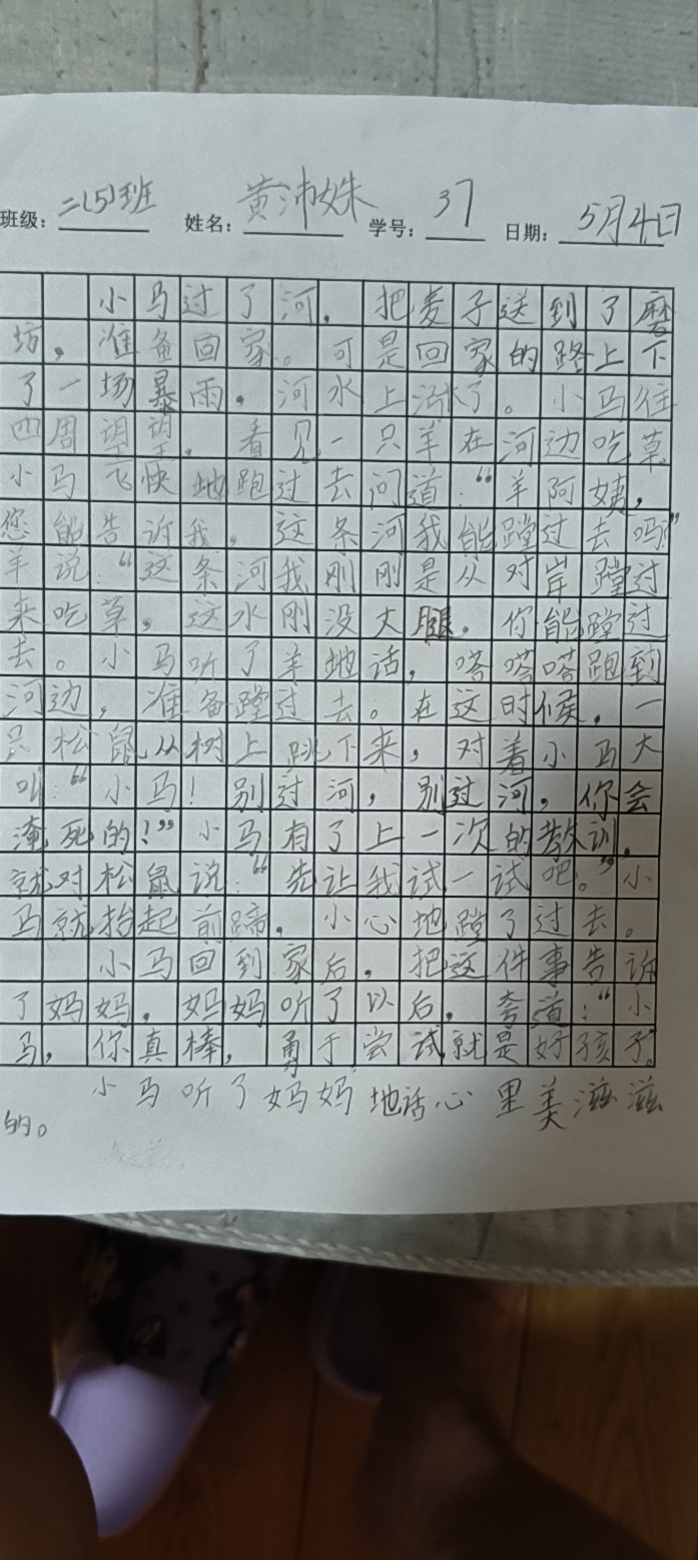 班级：二(5)班 姓名：黄沛姝 学号：37 日期：5月4日
小马过了河，把麦子送到了磨
坊，准备回家。可是回家的路上下
了一场暴雨，河水上涨了。小马往
四周望望，看见一只羊在河边吃草
小马飞快地跑过去问道：“羊阿姨，
您能告诉我，这条河我能蹚过去吗？”
羊说：“这条河我刚刚是从对岸蹚过
来吃草，这水刚没大腿，你能蹚过
去。小马听了羊地话，嗒嗒嗒跑到
河边，准备蹚过去。在这时候，一
只松鼠从树上跳下来，对着小马大
叫：“小马！别过河，别过河，你会
淹死的！”小马有了上一次的教训，
就对松鼠说：“先让我试一试吧。”小
马就抬起前蹄，小心地蹚了过去。
小马回到家后，把这件事告诉
了妈妈，妈妈听了以后，夸道：“小
马，你真棒，勇于尝试就是好孩子。
小马听了妈妈地话心里美滋滋
的。